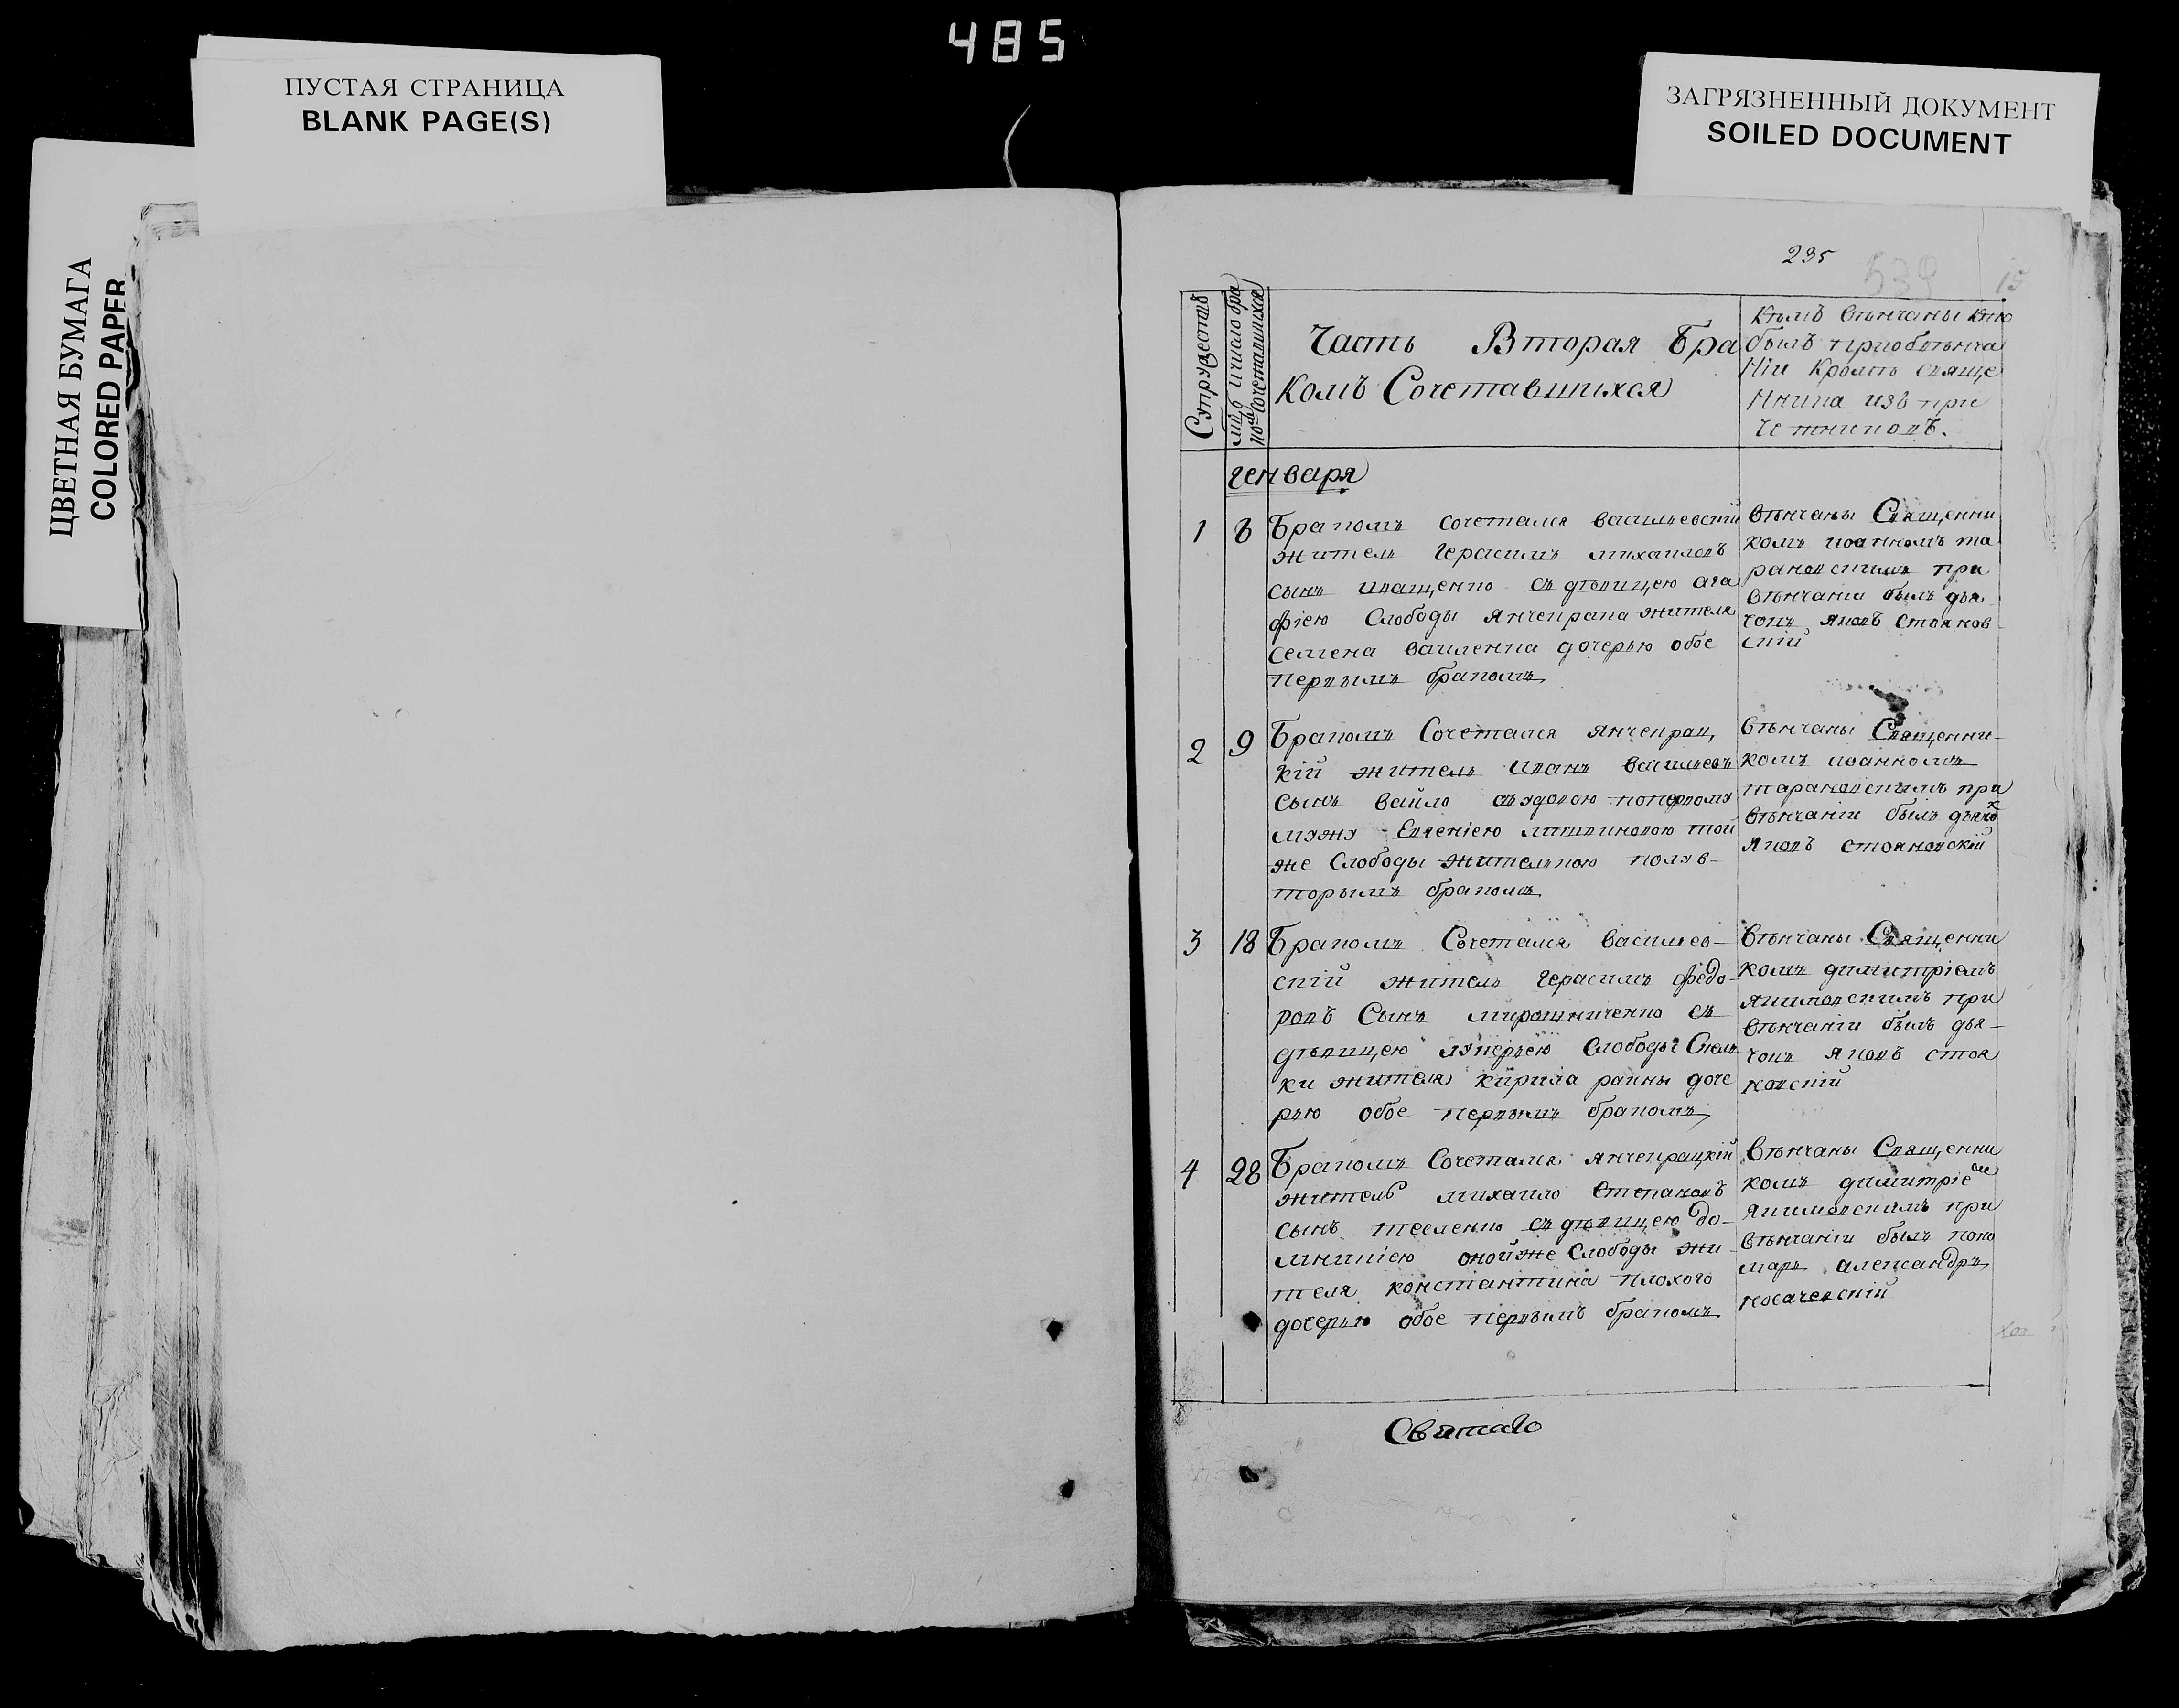 485
ПУСТАЯ СТРАНИЦА
BLANK PAGE(S)
ЦВЕТНАЯ БУМАГА
COLORED PAPER
ЗАГРЯЗНЕННЫЙ ДОКУМЕНТ
SOILED DOCUMENT
235
539
15
Супружествъ
Часть Вторая Бра
комъ Сочетавшихся
кѣмъ вѣнчаны кто
былъ приобвѣнча
ніи кромѣ свяще
нника изъ при
четниковъ.
генваря
1 8 Бракомъ сочетался васильевскій
житель герасимъ михаиловъ
сынъ иващенко съ дѣвицею ага
фіею Слободы янчекрака жителя
семена вакленка дочерью обое
первымъ бракомъ
вѣнчаны Священни
комъ иоанномъ та
рановскимъ при
вѣнчаніи былъ дья
чокъ яковъ стоянов
скій
2 9 Бракомъ Сочетался янчекрац
кій житель иванъ васильевъ
сынъ вайло съ вдовою попервому
мужу Евгеніею литвиновою той
же Слободы жителькою полув-
торымъ бракомъ
вѣнчаны Священни-
комъ иоанномъ
тарановскимъ при
вѣнчаніи былъ дьячокъ
яковъ стояновскій
3 18 Бракомъ Сочетался васильев-
скій житель герасимъ федо-
ровъ Сынъ мирошниченко съ
дѣвицею лукерьею Слободы Скель
ки жителя кирила раины доче
рью обое первымъ бракомъ
вѣнчаны Священни
комъ димитріемъ
якимовскимъ при
вѣнчаніи былъ дья-
чокъ яковъ стоя
новскій
4 28 Бракомъ Сочетался янчекрацкій
житель михаило Степановъ
сынъ тесленко съ дѣвицею до-
мникіею онойже Слободы жи
теля константина плохого
дочерью обое первымъ бракомъ
вѣнчаны Священни
комъ димитріемъ
якимовскимъ при
вѣнчаніи былъ поно
марь александръ
носачевскій
Святаго